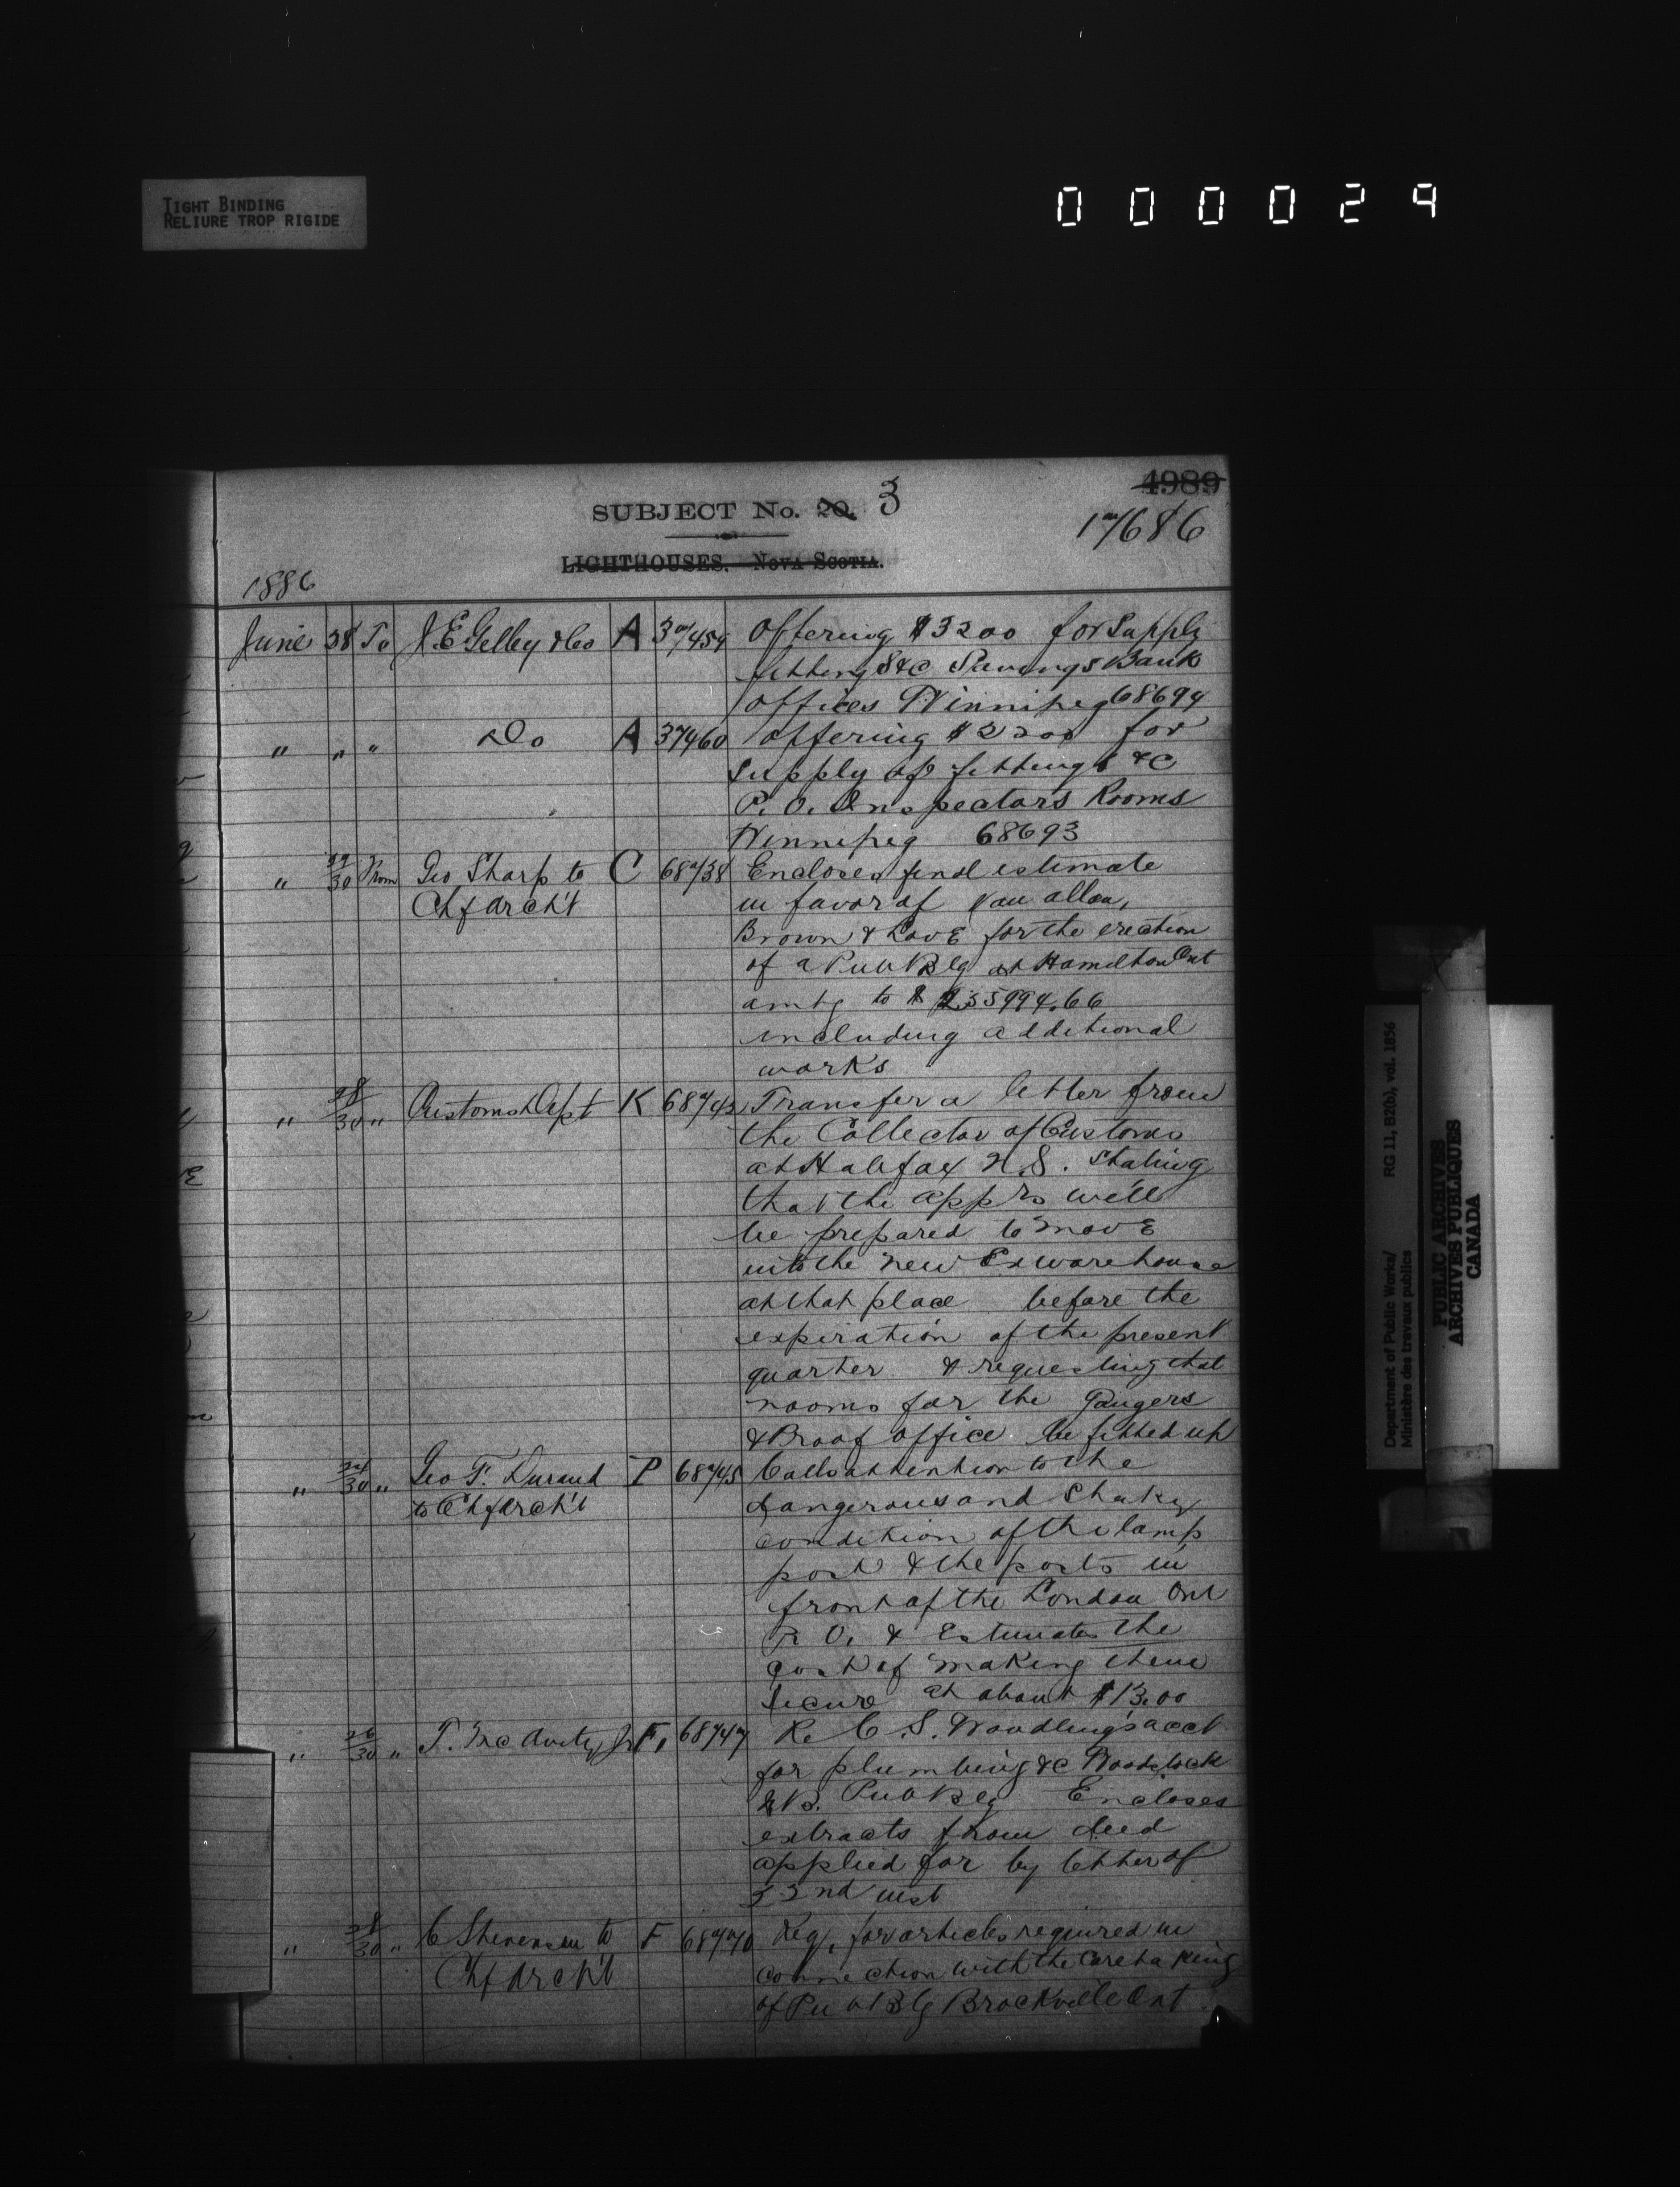 TIGHT BINDING
RELIURE TROP RIGIDE
000029
4989
SUBJECT No. 20. 3
17686
LIGHTHOUSES. NOVA SCOTIA.
1886
June 28 To J.E. Gelley & Co A 37459 Offering $3200 for Supply
fittings &c Savings Bank
Offices Winnipeg 68694
" " " Do A 37460 Offering $2200 for
supply of fittings &c
P. O. Inspectors Rooms
Winnipeg 68693
" 29/30 From Geo Sharp to C 68738 Encloses final estimate
Chf Arch't in favor of Van Allen,
Brown & Love for the erection
of a Pub Blg at Hamilton Ont
amtg to $ 235994.66
including additional
works
" 28/30 " Customs Dept K 68742 Transfer a letter from
the Collector of Customs
at Halifax N.S. stating
that the apprs will
be prepared to move
into the new Ex warehouse
at that place before the
expiration of the present
quarter & requesting that
rooms for the Gaugers
& Proof office be fitted up
" 24/30 " Geo F. Durand P 68745 Calls attention to the
to Chf Arch't dangerous and shaky
condition of the lamp
post & the posts in
front of the London Ont
P. O. & Estimates the
cost of making them
secure at about $13.00
" 26/30 " T. McAvity Jr F, 68747 Re C. S. Woodling's acct
for plumbing &c Woodstock
N.B. Pub Blg Encloses
extracts from deed
applied for by letter of
22nd inst
" 28/30 " C Stevenson to F 68770 Req, for articles required in
Chf Arch't connection with the caretaking
of Pub Blg Brockville Ont
Department of Public Works/ RG 11, B2(b), vol. 1856
Ministère des travaux publics
PUBLIC ARCHIVES
ARCHIVES PUBLIQUES
CANADA